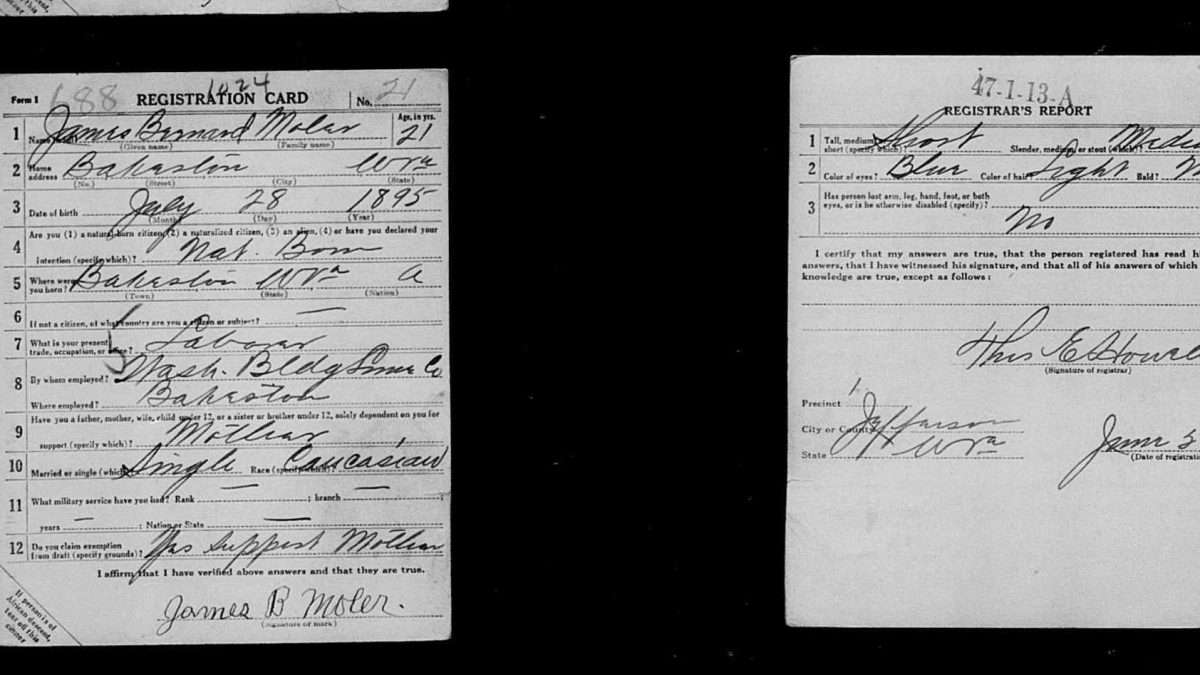 1024
Form 1 688 REGISTRATION CARD No. 21
1 Name in full James Bernard Moler Age, in yrs. 21
(Given name) (Family name)
2 Home address Bakerton WVa
(No.) (Street) (City) (State)
3 Date of birth July 28 1895
(Month) (Day) (Year)
4 Are you (1) a natural born citizen, (2) a naturalized citizen, (3) an alien, (4) or have you declared your
intention (specify which)? Nat. Born
5 Where were you born? Bakerton WVa
(Town) (State) (Nation)
6 If not a citizen, of what country are you a citizen or subject? —
7 What is your present trade, occupation, or office? Laborer
8 By whom employed? Wash. Bldg Lime Co
Where employed? Bakerton
9 Have you a father, mother, wife, child under 12, or a sister or brother under 12, solely dependent on you for
support (specify which)? Mother
10 Married or single (which)? Single Race (specify which)? Caucasian
11 What military service have you had? Rank — ; branch — ;
years — ; Nation or State —
12 Do you claim exemption from draft (specify grounds)? Yes support Mother
I affirm that I have verified above answers and that they are true.
James B Moler.
(Signature or mark)
If person is of
African descent,
tear off this
corner
47-1-13-A
REGISTRAR'S REPORT
1 Tall, medium, or short (specify which)? Short Slender, medium, or stout (which)?
2 Color of eyes? Blue Color of hair? Light Bald?
3 Has person lost arm, leg, hand, foot, or both
eyes, or is he otherwise disabled (specify)?
No
I certify that my answers are true, that the person registered has read
answers, that I have witnessed his signature, and that all of his answers of which
knowledge are true, except as follows:
(Signature of registrar)
Precinct 1
City or County Jefferson
State WVa
June 5
(Date of registration